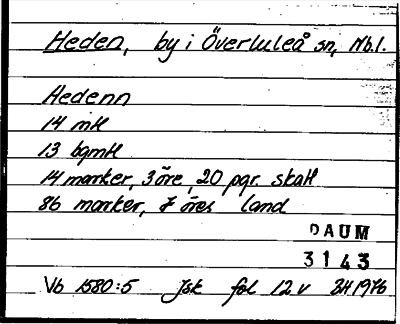 Heden, by i Överluleå sn, Nb.l.
Hedenn
14 mtl
13 bgmtl
14 marker, 3 öre, 20 pgr. skatt
86 marker, 7 öres land
DAUM
3143
Vb 1580:5 Jsk fol 12 v BH 1976